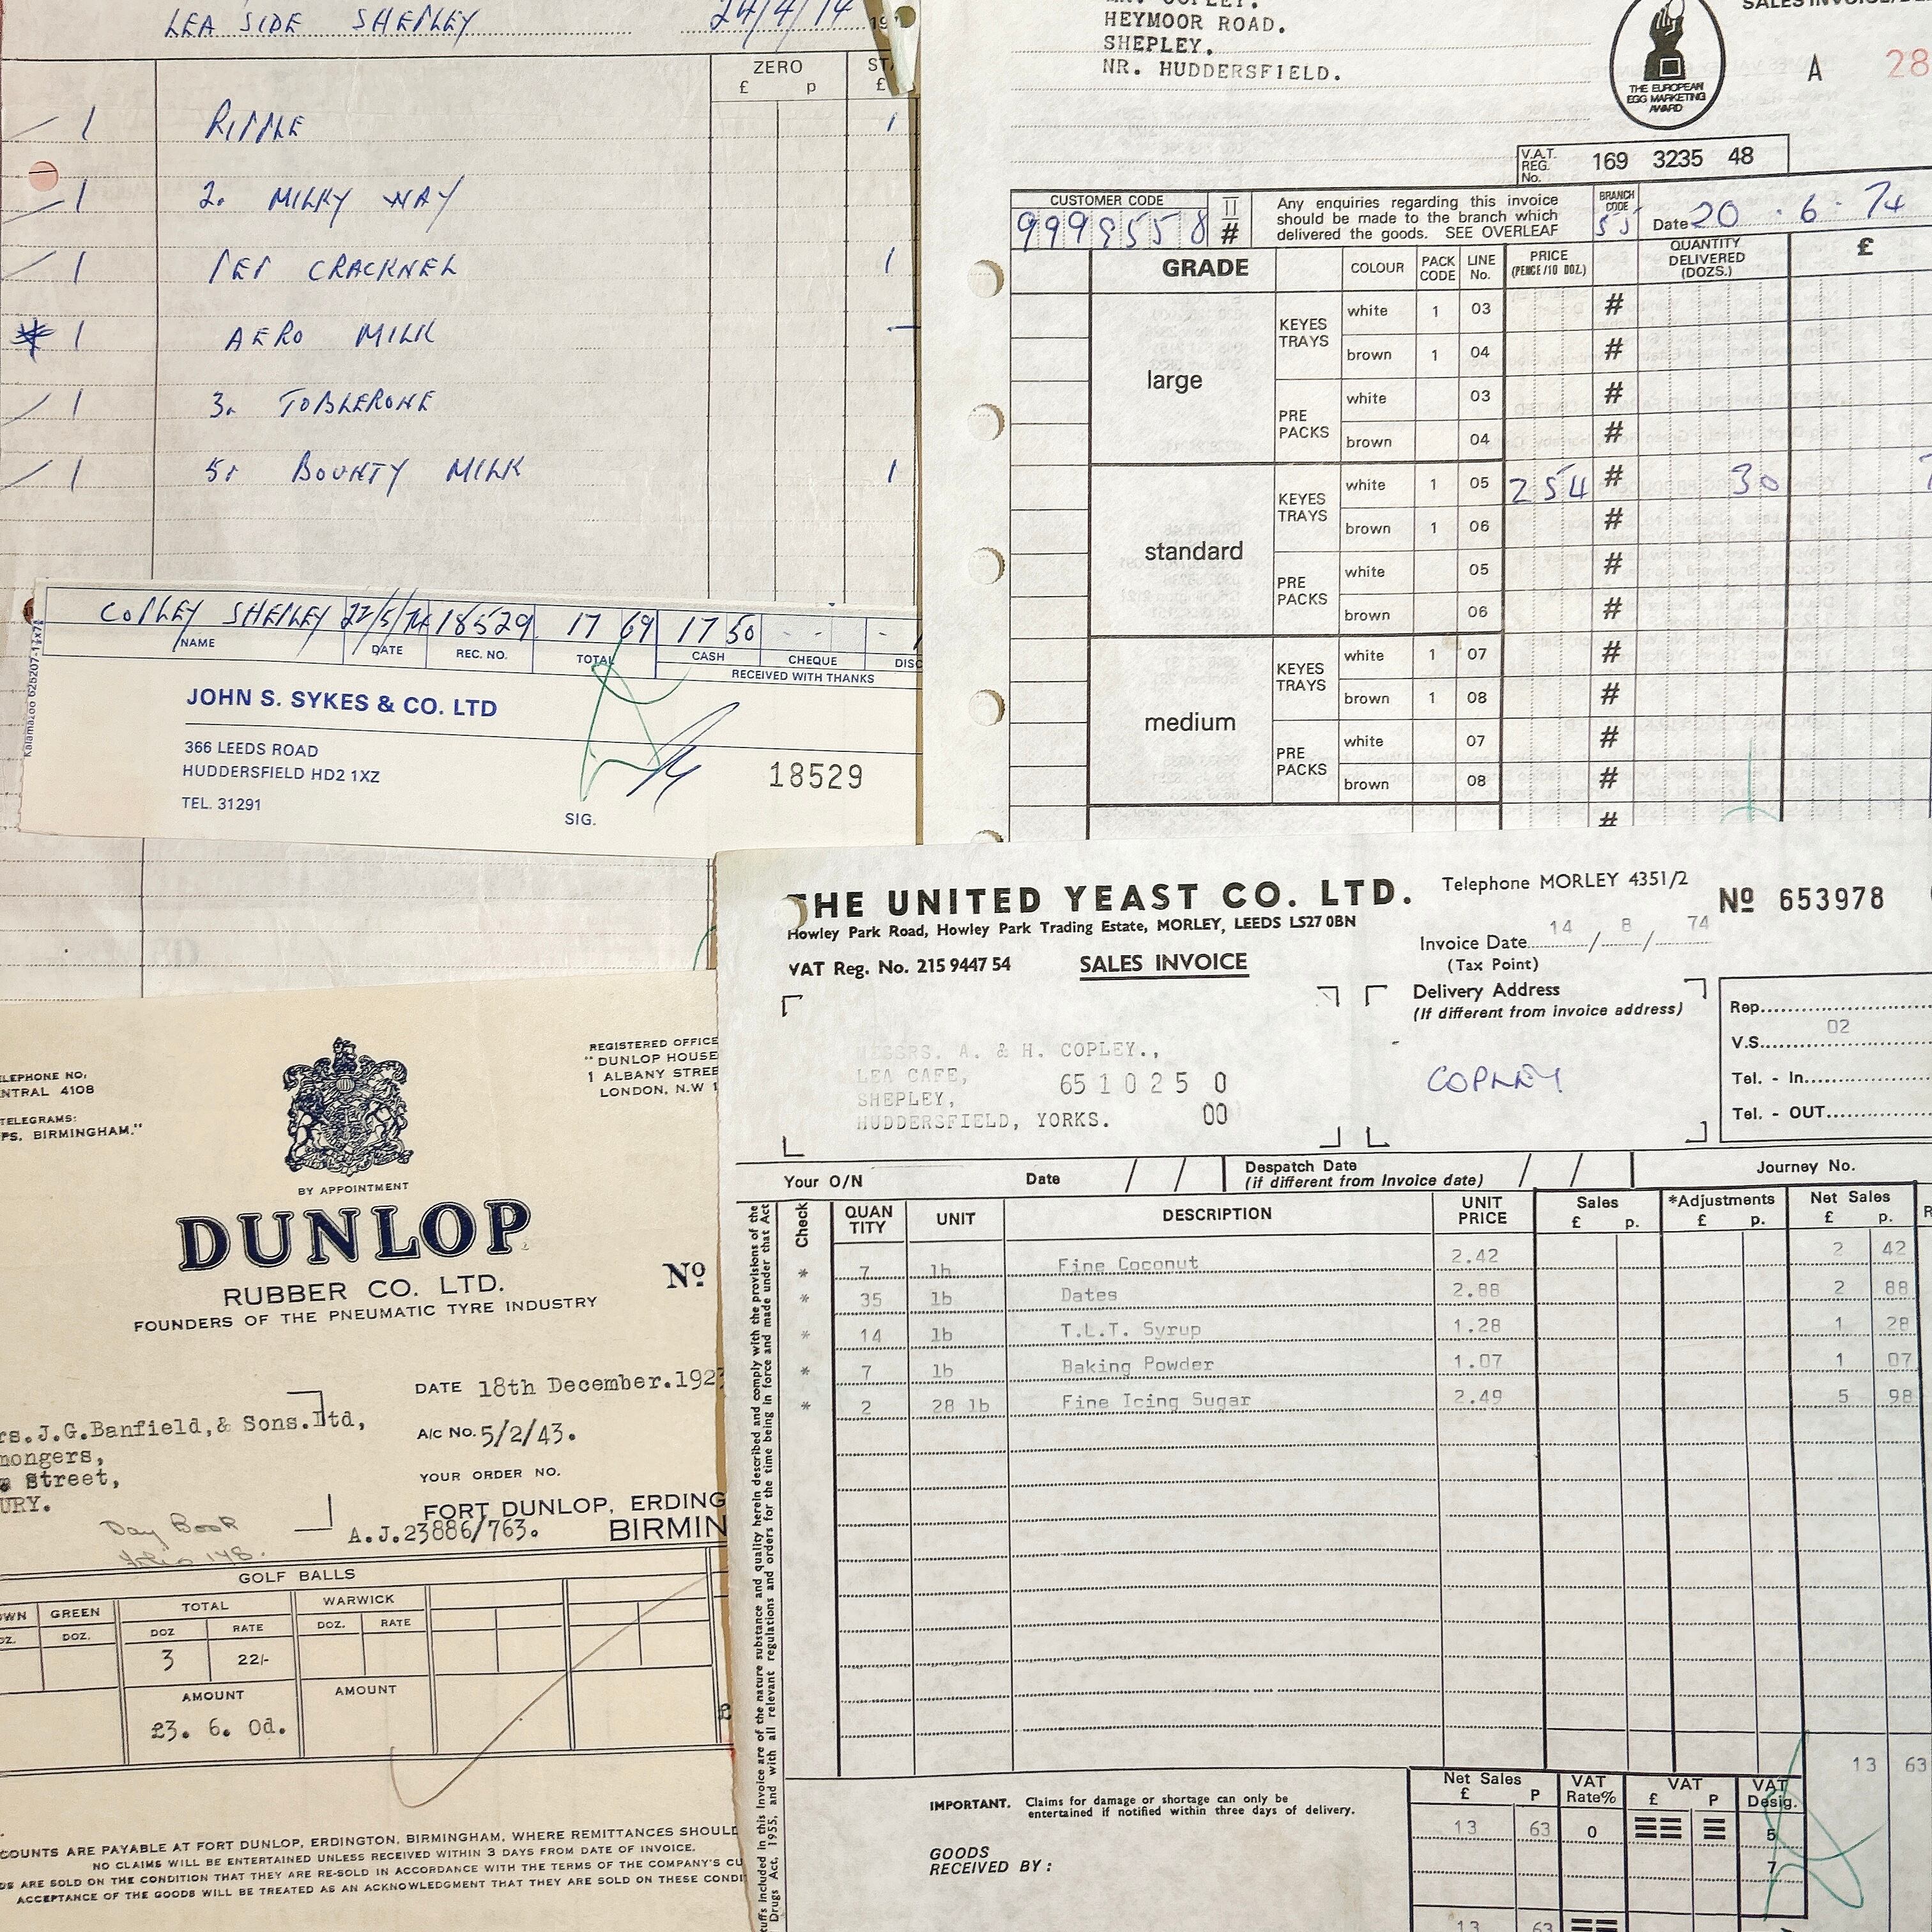 LEA SIDE SHEPLEY 24/4/74 19
ZERO
£ p £
/ 1 RIPPLE 1
/ 1 2. MILKY WAY
/ 1 PEP CRACKNEL 1
* 1 AERO MILK -
/ 1 3. TOBLERONE
/ 1 5r BOUNTY MILK 1
COPLEY SHEPLEY 22/5/74 18529 17 69 17 50 - - -
NAME DATE REC. NO. TOTAL CASH CHEQUE DISC
RECEIVED WITH THANKS
JOHN S. SYKES & CO. LTD
366 LEEDS ROAD
HUDDERSFIELD HD2 1XZ
TEL. 31291
SIG.
18529
HEYMOOR ROAD.
SHEPLEY.
NR. HUDDERSFIELD.
THE EUROPEAN
EGG MARKETING
AWARD
A 28
V.A.T.
REG.
No.
169 3235 48
CUSTOMER CODE
9999558 #
Any enquiries regarding this invoice
should be made to the branch which
delivered the goods. SEE OVERLEAF
BRANCH
CODE
55
Date 20 . 6 . 74
GRADE COLOUR PACK CODE LINE No. PRICE (PENCE/10 DOZ.) QUANTITY DELIVERED (DOZS.) £
large
KEYES TRAYS white 1 03 #
brown 1 04 #
PRE PACKS white 03 #
brown 04 #
standard
KEYES TRAYS white 1 05 254 # 30
brown 1 06 #
PRE PACKS white 05 #
brown 06 #
medium
KEYES TRAYS white 1 07 #
brown 1 08 #
PRE PACKS white 07 #
brown 08 #
#
THE UNITED YEAST CO. LTD.
Howley Park Road, Howley Park Trading Estate, MORLEY, LEEDS LS27 0BN
VAT Reg. No. 215 9447 54 SALES INVOICE
Telephone MORLEY 4351/2
Nº 653978
Invoice Date 14 / 8 / 74
(Tax Point)
Delivery Address
(If different from invoice address)
COPLEY
MESSRS. A. & H. COPLEY.,
LEA CAFE,
SHEPLEY,
HUDDERSFIELD, YORKS.
65 1 0 2 5 0
00
Rep.
02
V.S.
Tel. - In
Tel. - OUT
Your O/N Date / / Despatch Date / / Journey No.
(if different from Invoice date)
Check QUAN TITY UNIT DESCRIPTION UNIT PRICE Sales £ p. *Adjustments £ p. Net Sales £ p.
* 7 lb Fine Coconut 2.42 2 42
* 35 lb Dates 2.88 2 88
* 14 lb T.L.T. Syrup 1.28 1 28
* 7 lb Baking Powder 1.07 1 07
* 2 28 lb Fine Icing Sugar 2.49 5 98
13 63
Net Sales £ P VAT Rate% VAT £ P VAT Desig.
13 63 0 5
7
13 63
IMPORTANT. Claims for damage or shortage can only be
entertained if notified within three days of delivery.
GOODS
RECEIVED BY :
included in this Invoice are of the nature substance and quality herein described and comply with the provisions of the
Drugs Act, 1955, and with all relevant regulations and orders for the time being in force and made under that Act
TELEPHONE NO.
CENTRAL 4108
TELEGRAMS:
BIRMINGHAM."
REGISTERED OFFICE
"DUNLOP HOUSE
1 ALBANY STREE
LONDON, N.W 1
BY APPOINTMENT
DUNLOP
RUBBER CO. LTD.
FOUNDERS OF THE PNEUMATIC TYRE INDUSTRY
Nº
DATE 18th December.192
A/c No. 5/2/43.
YOUR ORDER NO.
rs.J.G.Banfield,& Sons.Ltd,
mongers,
Street,
URY.
Day Book
folio 148.
FORT DUNLOP, ERDING
A.J.23886/763. BIRMIN
GOLF BALLS
WN GREEN TOTAL WARWICK
OZ. DOZ. DOZ RATE DOZ. RATE
3 22/-
AMOUNT AMOUNT
£3. 6. 0d.
COUNTS ARE PAYABLE AT FORT DUNLOP, ERDINGTON, BIRMINGHAM, WHERE REMITTANCES SHOULD
NO CLAIMS WILL BE ENTERTAINED UNLESS RECEIVED WITHIN 3 DAYS FROM DATE OF INVOICE.
DS ARE SOLD ON THE CONDITION THAT THEY ARE RE-SOLD IN ACCORDANCE WITH THE TERMS OF THE COMPANY'S CU
ACCEPTANCE OF THE GOODS WILL BE TREATED AS AN ACKNOWLEDGMENT THAT THEY ARE SOLD ON THESE CONDI